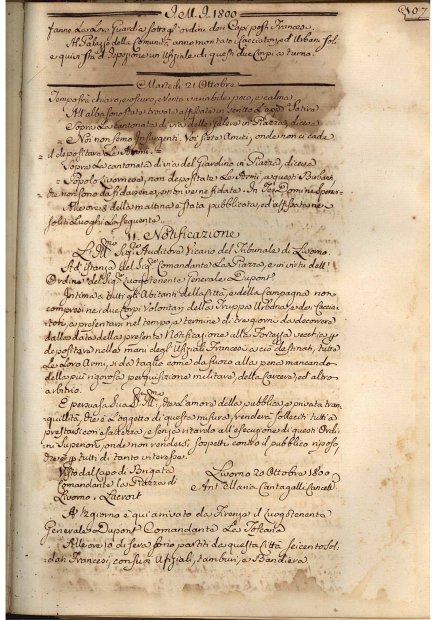 I. M. I. 1800
107
fanno Le Loro Guardie sotto gl' ordini dei Capi posti Francesi.
Al Palazzo della Comunità anno montati Cacciatori, ed Urbani Sol.
e quivi stà d'ispezione un Ufiziale di questi due Corpi a turno.
Martedì 21 Ottobre
Tempo frà chiaro, e oscuro, Vento variabile, poco, e calma
All'alba sono state trovate affissate in scritto La
Sopra La Cantonata di via delle Galere in Piazza, diceva
= Noi non siamo Insurgenti. Voi siete Amuti, onde non ci cade
= il depositare Le Armi =
Sopra La Cantonata di via del Giardino in Piazza, diceva
= Popolo Livornese, non depositate Le Armi, a questi Birbanti
= che non sono da fidarsene, e non ve ne fidate. In Te Domine Sper.
Alle ore della mattina è stata pubblicata, ed affissata ne
soliti Luoghi La seguente
Notificazione
L' Ill.mo Sig.r Auditore Vicario del Tribunale di Livorno.
Ad' Istanza del Sig.r Comandante La Piazza, e in virtù dell'
Ordine del Sig.r Luogotenente Generale Dupont
Intima a tutti gli Abitanti della Città, e della Campagna non
compresi nei due Corpi Volontarj della Truppa Urbana, e dei Caccia-
tori, a presentare nel tempo, e termine di tre giorni da decorrere
dalla data della presente Notificazione alla Fortezza vecchia, e
depositare nelle mani degli Ufiziali Francesi a ciò destinati, tutte
Le Loro Armi, sì da taglio come da fuoco alla pena mancando
della più rigorosa perquisizione militare, della Carcere, ed altro
arbitrio.
E persuasa Sua Sig.ria Ill.ma che L'amore della pubblica, e privata tran-
quillità, che è L'oggetto di questa misura, renderà solleciti tutti a
prestarsi con esattezza, e senza ritardo all'esecuzione di questi Ordi-
ni Superiori, onde non rendersi sospetti contro il pubblico riposo,
che è p. tutti di tanto interesse.
Visto dal Capo di Brigata
Comandante La Piazza di
Livorno.
Livorno 20 Ottobre 1800
Ant. Maria Cantagalli Cancell.
A ½ giorno è qui arrivato da Firenze il Luogotenente
Generale Dupont Comandante La Toscana
Alle ore di sera sono partiti da questa Città seicento Sol-
dati Francesi, con suoi Ufiziali, tamburi, e Bandiera